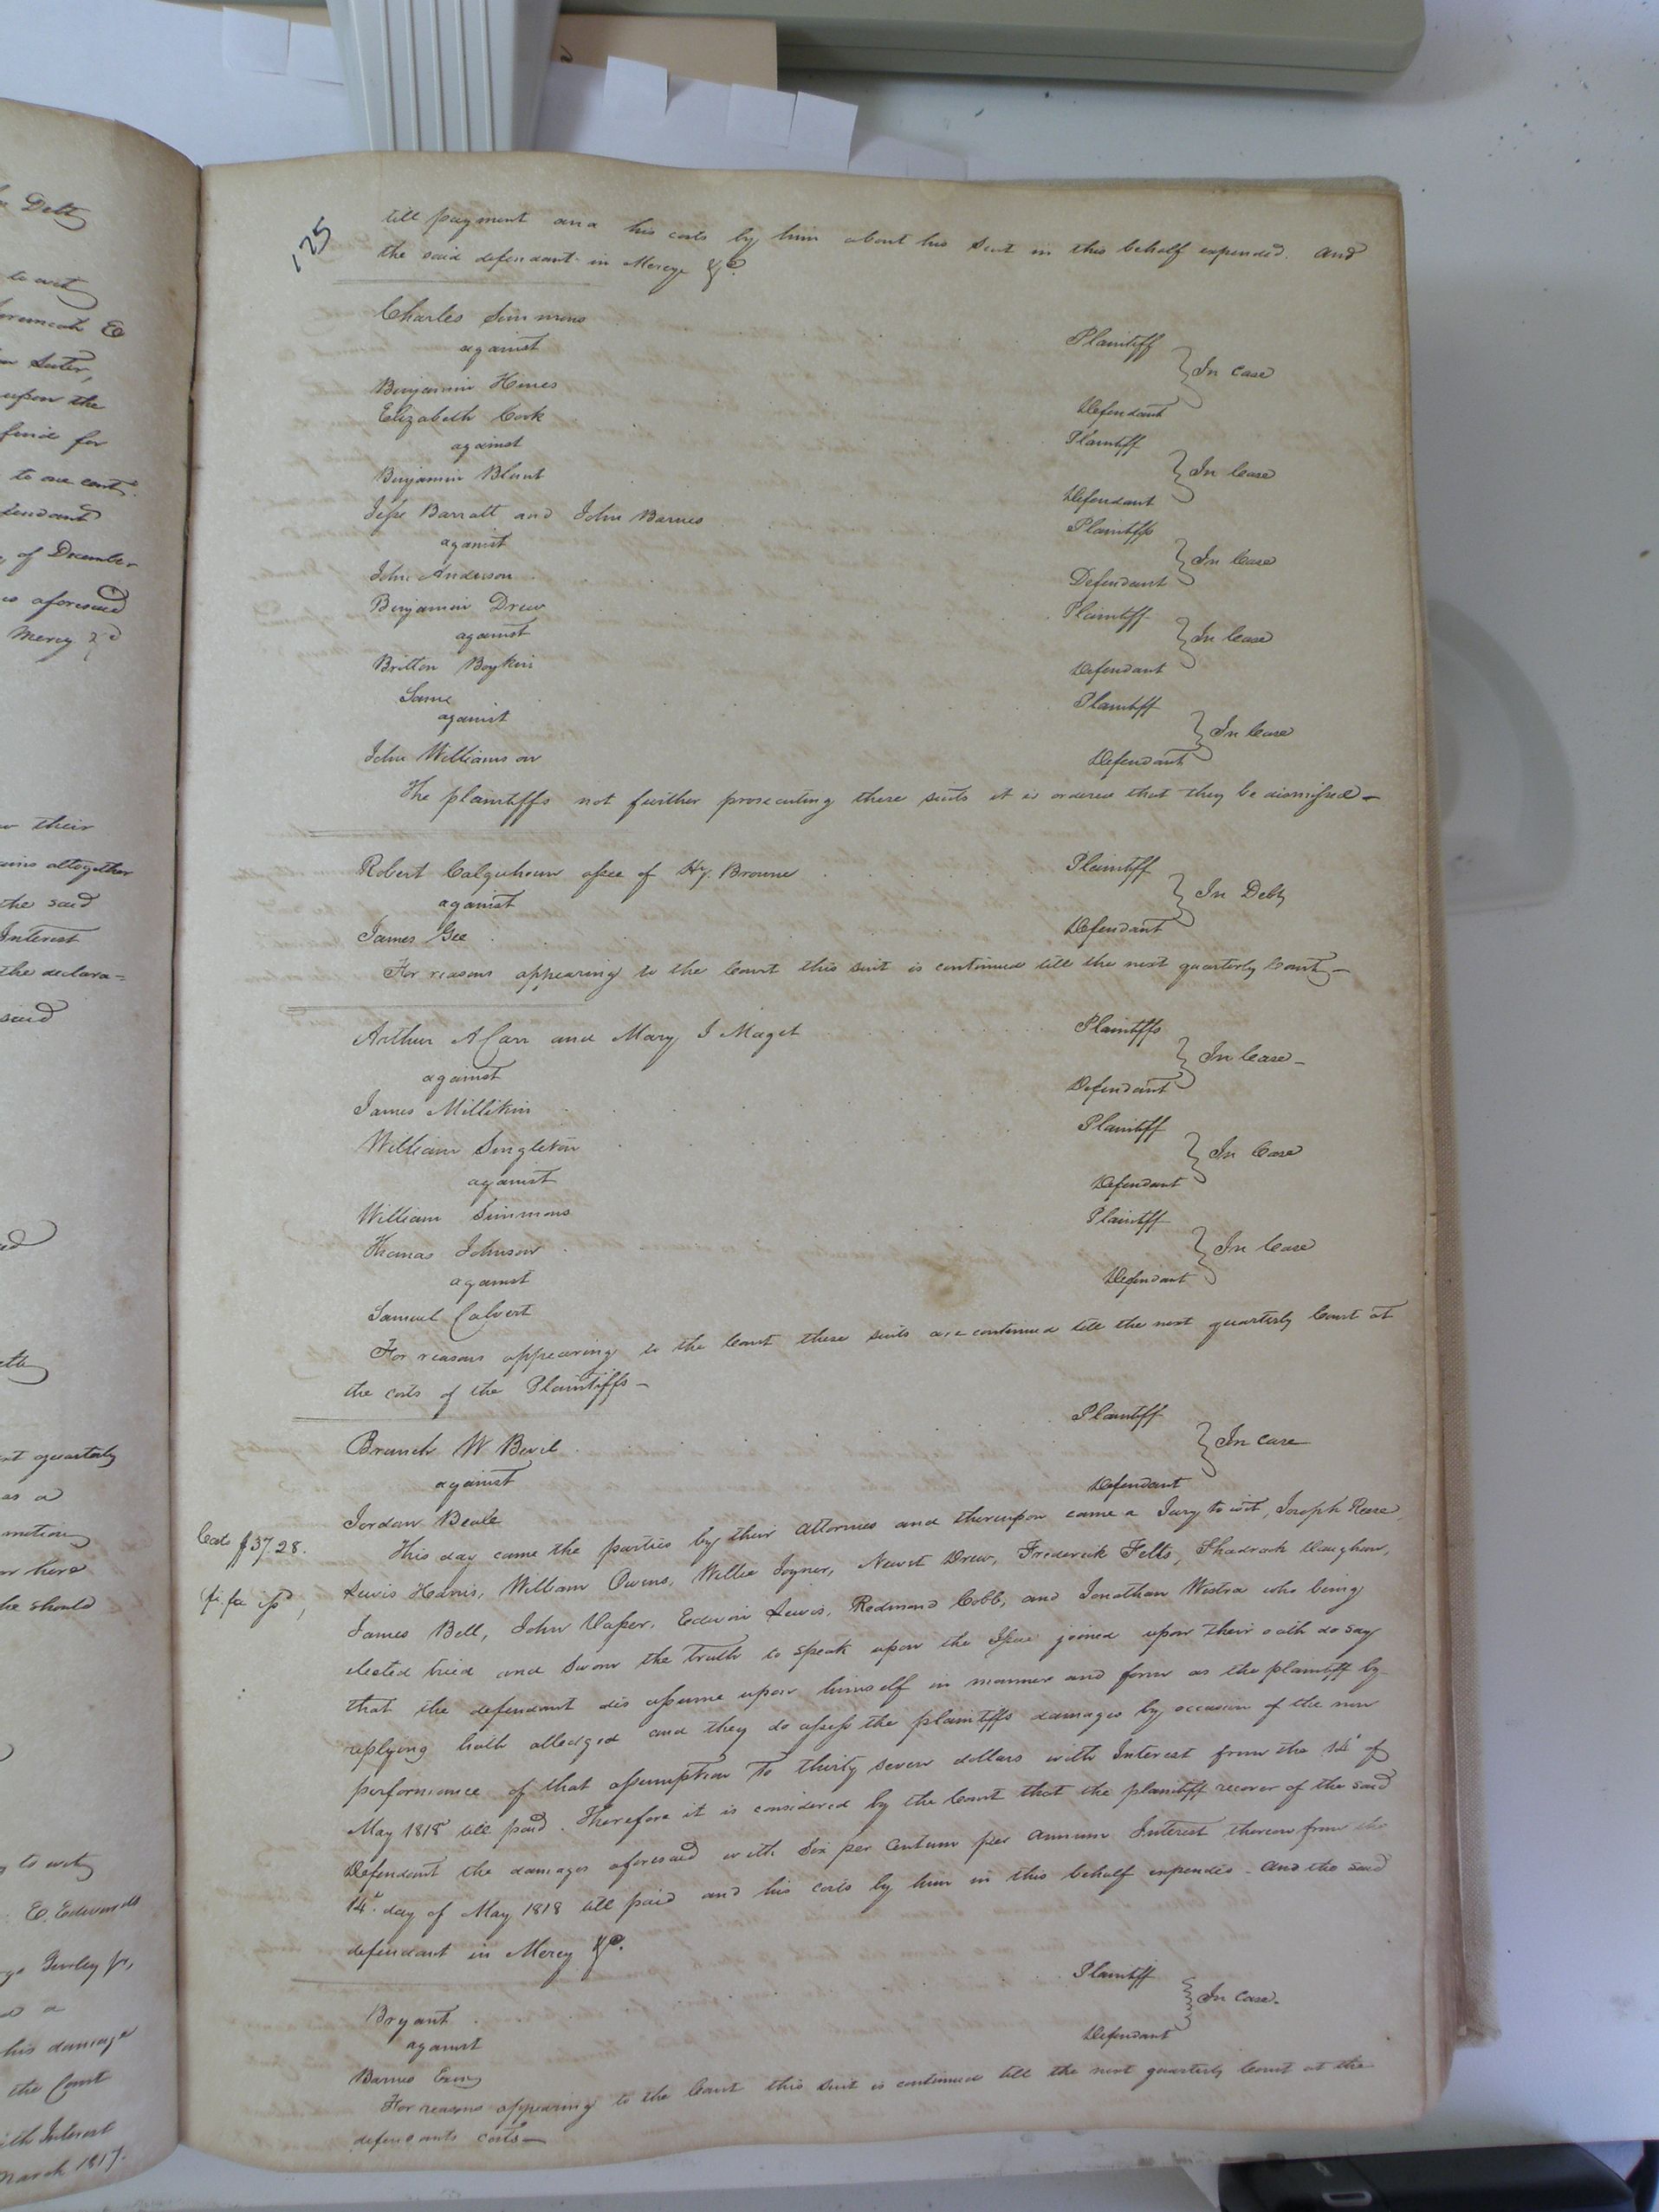 125
till payment and his costs by him about his suit in this behalf expended. And
the said defendant in Mercy &c.
Charles Simmons Plaintiff
against In Case
Benjamin Hines Defendant
Elizabeth Cook Plaintiff
against In Case
Benjamin Blunt Defendant
Jesse Barratt and John Barnes Plaintiffs
against In Case
John Anderson Defendant
Benjamin Drew Plaintiff
against In Case
Britton Boykin Defendant
Same Plaintiff
against In Case
John Williamson Defendant
The plaintiffs not further prosecuting these suits it is ordered that they be dismissed —
Robert Colquhoun assee of Hy. Browne Plaintiff
against In Debt
James Gee Defendant
For reasons appearing to the Court this suit is continued till the next quarterly Court —
Arthur A Carr and Mary J Maget Plaintiffs
against In Case —
James Millikin Defendant
William Singleton Plaintiff
against In Case
William Simmons Defendant
Thomas Johnson Plaintiff
against In Case
Samuel Calvert Defendant
For reasons appearing to the Court these suits are continued till the next quarterly Court at
the costs of the Plaintiffs —
Branch W Bevil Plaintiff
against In Case
Jordan Beale Defendant
Costs $37.28.
This day came the parties by their attornies and thereupon came a Jury to wit, Joseph Reese,
Lewis Harris, William Owens, Willie Joyner, Newit Drew, Frederick Felts, Shadrach Vaughan,
James Bell, John Vasser, Edwin Lewis, Redmond Cobb, and Jonathan Westra who being
elected tried and sworn the Truth to speak upon the Issue joined upon their oath do say
that the defendant did assume upon himself in manner and form as the plaintiff by
replying hath alledged and they do assess the plaintiffs damages by occasion of the non
performance of that assumption to thirty seven dollars with Interest from the 14th of
May 1818 till paid. Therefore it is considered by the Court that the plaintiff recover of the said
Defendant the damages aforesaid with six per Centum per Annum Interest thereon from the
14th day of May 1818 till paid and his costs by him in this behalf expended. And the said
defendant in Mercy &c.
Bryant Plaintiff
against In Case.
Barnes Defendant
For reasons appearing to the Court this suit is continued till the next quarterly Court at the
defendants costs —